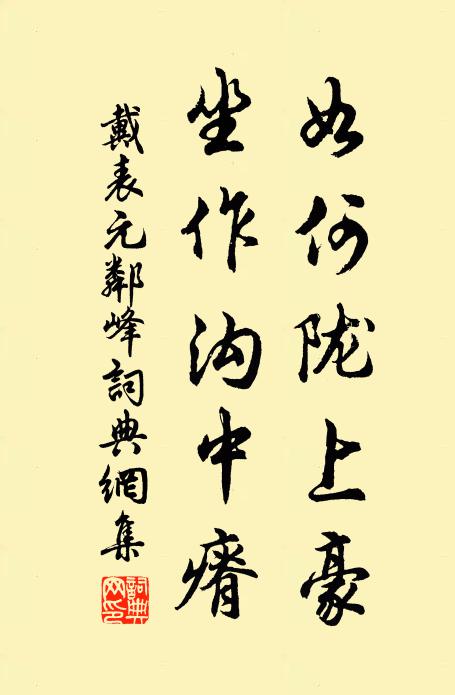 如何陇上豪
坐作沟中瘠
戴表元鄰峰詞典網集
詞典网印